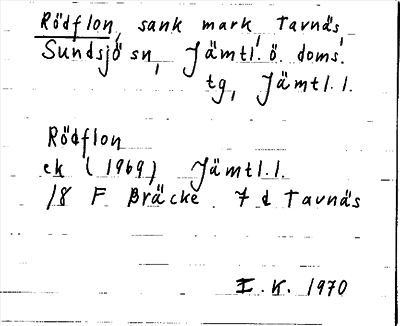 Rödflon, sank mark, Tavnäs,
Sundsjö sn, Jämtl. ö. doms.
tg, Jämtl. l.
Rödflon
ek (1969) Jämtl. l.
18 F Bräcke 7 d Tavnäs
I. K. 1970